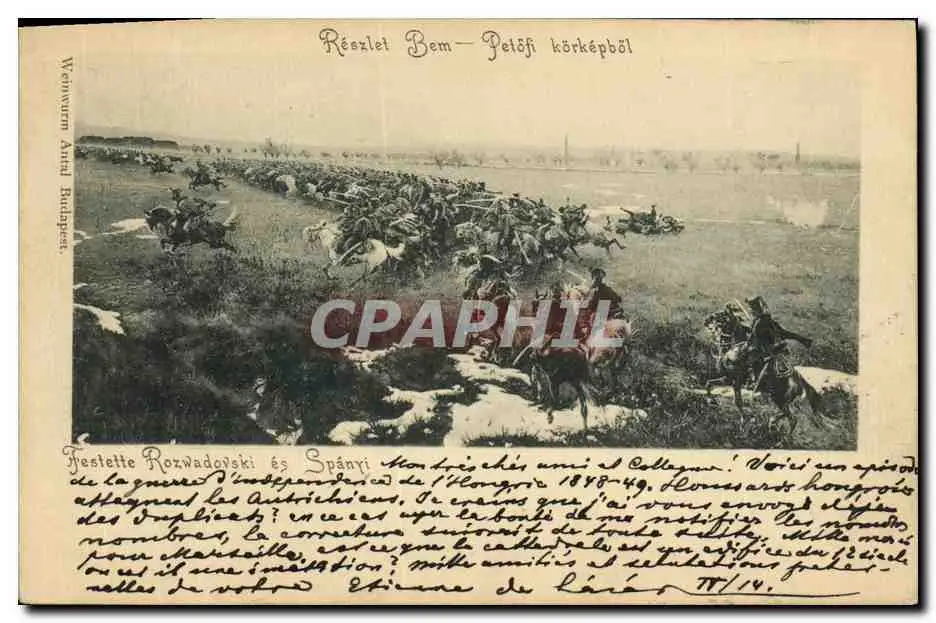 Részlet Bem — Petőfi körképből
Weinwurm Antal Budapest.
CPAPHIL
Festette Rozwadovski és Spányi
Mon très cher ami et Collegue! Voici un episode
de la guerre d'indépendence de l'Hongrie 1848-49. Houssards hongrois
attaquent les Autrichiens. Je crains que j'ai vous envoyé déjà
des duplicats? en ce cas ayez la bonté de me notifier les
nombres, la correcture suivrait de toute suite. Mille mercis
pour Marseille, est ce que la cathedrale est un edifice du 12 siecle
ou est il une imitation? mille amitiés et salutations frater-
nelles de votre Etienne de IV/14.